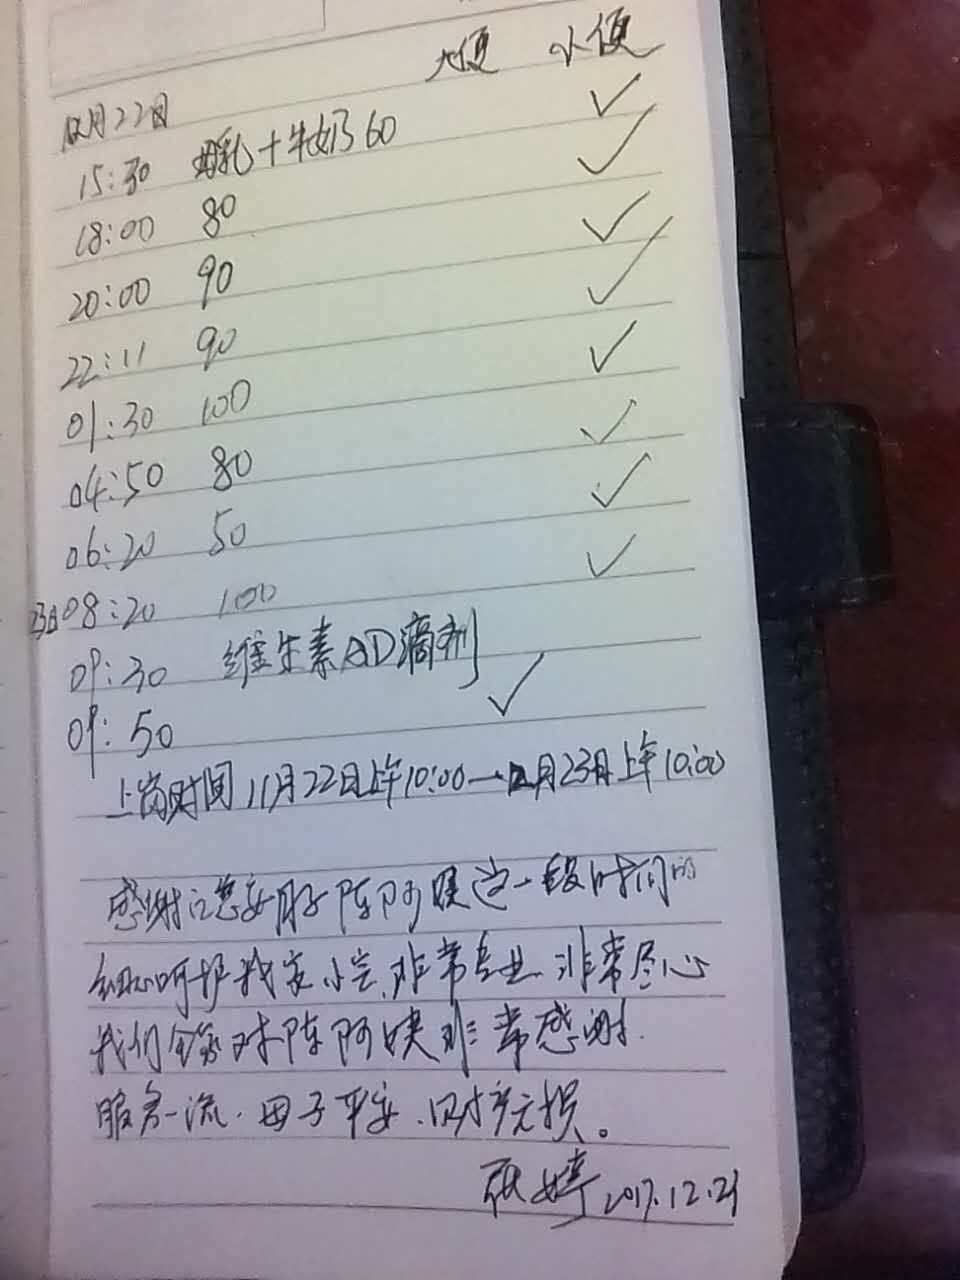 大便 小便
12月22日 ✓
15:30 母乳+牛奶60 ✓
18:00 80 ✓
20:00 90 ✓
22:11 90 ✓
01:30 100 ✓
04:50 80 ✓
06:20 50 ✓
23日08:20 100
09:30 维生素AD滴剂
09:50 ✓
上岗时间11月22日上午10:00—12月23日上午10:00
感谢 陈阿姨这一段时间的
细心呵护我家小宝,非常专业,非常尽心
我们全家对陈阿姨非常感谢.
服务一流.母子平安.财产无损。
张婷 2017.12.23